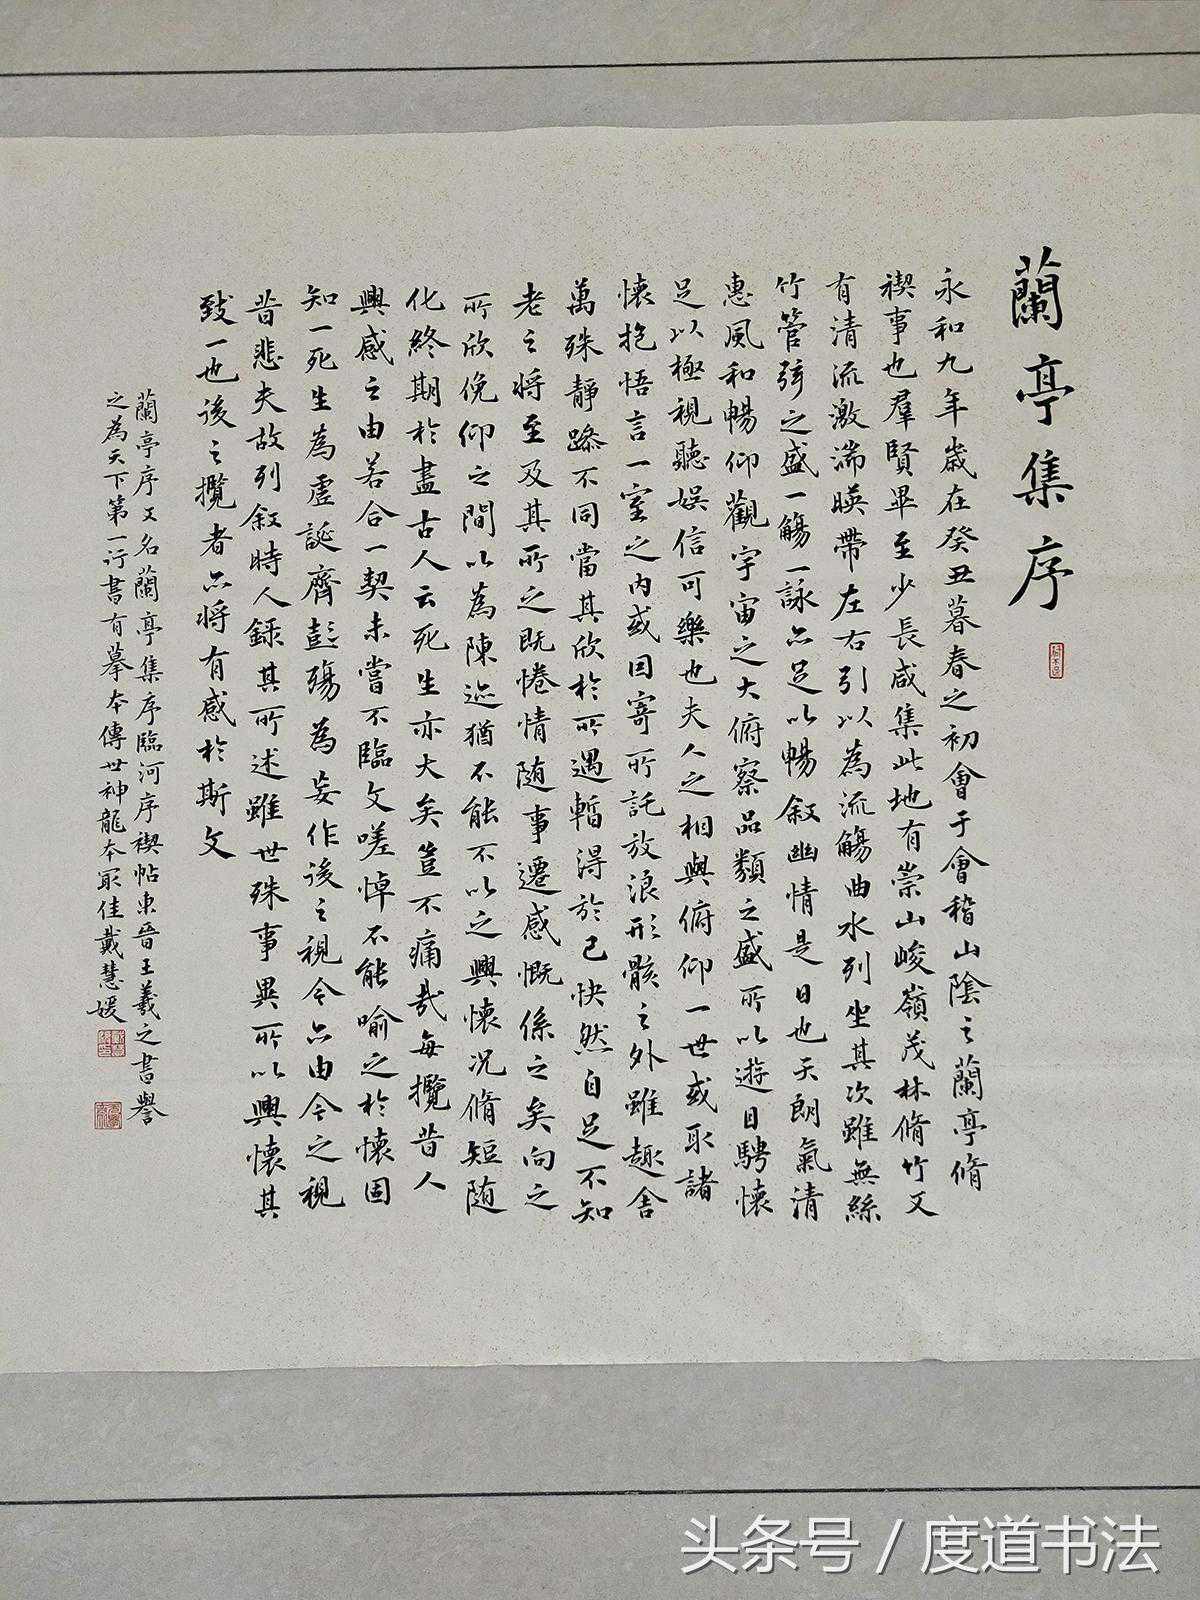 蘭亭集序
永和九年歲在癸丑暮春之初會于會稽山陰之蘭亭脩
禊事也羣賢畢至少長咸集此地有崇山峻嶺茂林脩竹又
有清流激湍暎帶左右引以為流觴曲水列坐其次雖無絲
竹管弦之盛一觴一詠亦足以暢叙幽情是日也天朗氣清
惠風和暢仰觀宇宙之大俯察品類之盛所以遊目騁懷
足以極視聽娛信可樂也夫人之相與俯仰一世或取諸
懷抱悟言一室之內或因寄所託放浪形骸之外雖趣舍
萬殊靜躁不同當其欣於所遇暫得於己快然自足不知
老之將至及其所之既惓情随事遷感慨係之矣向之
所欣俛仰之間以為陳迹猶不能不以之興懷况脩短随
化終期於盡古人云死生亦大矣豈不痛哉每攬昔人
興感之由若合一契未嘗不臨文嗟悼不能喻之於懷固
知一死生為虛誕齊彭殤為妄作後之視今亦由今之視
昔悲夫故列叙時人錄其所述雖世殊事異所以興懷其
致一也後之攬者亦將有感於斯文
蘭亭序又名蘭亭集序臨河序禊帖東晉王羲之書譽
之為天下第一行書有摹本傳世神龍本最佳戴慧媛
头条号 / 度道书法